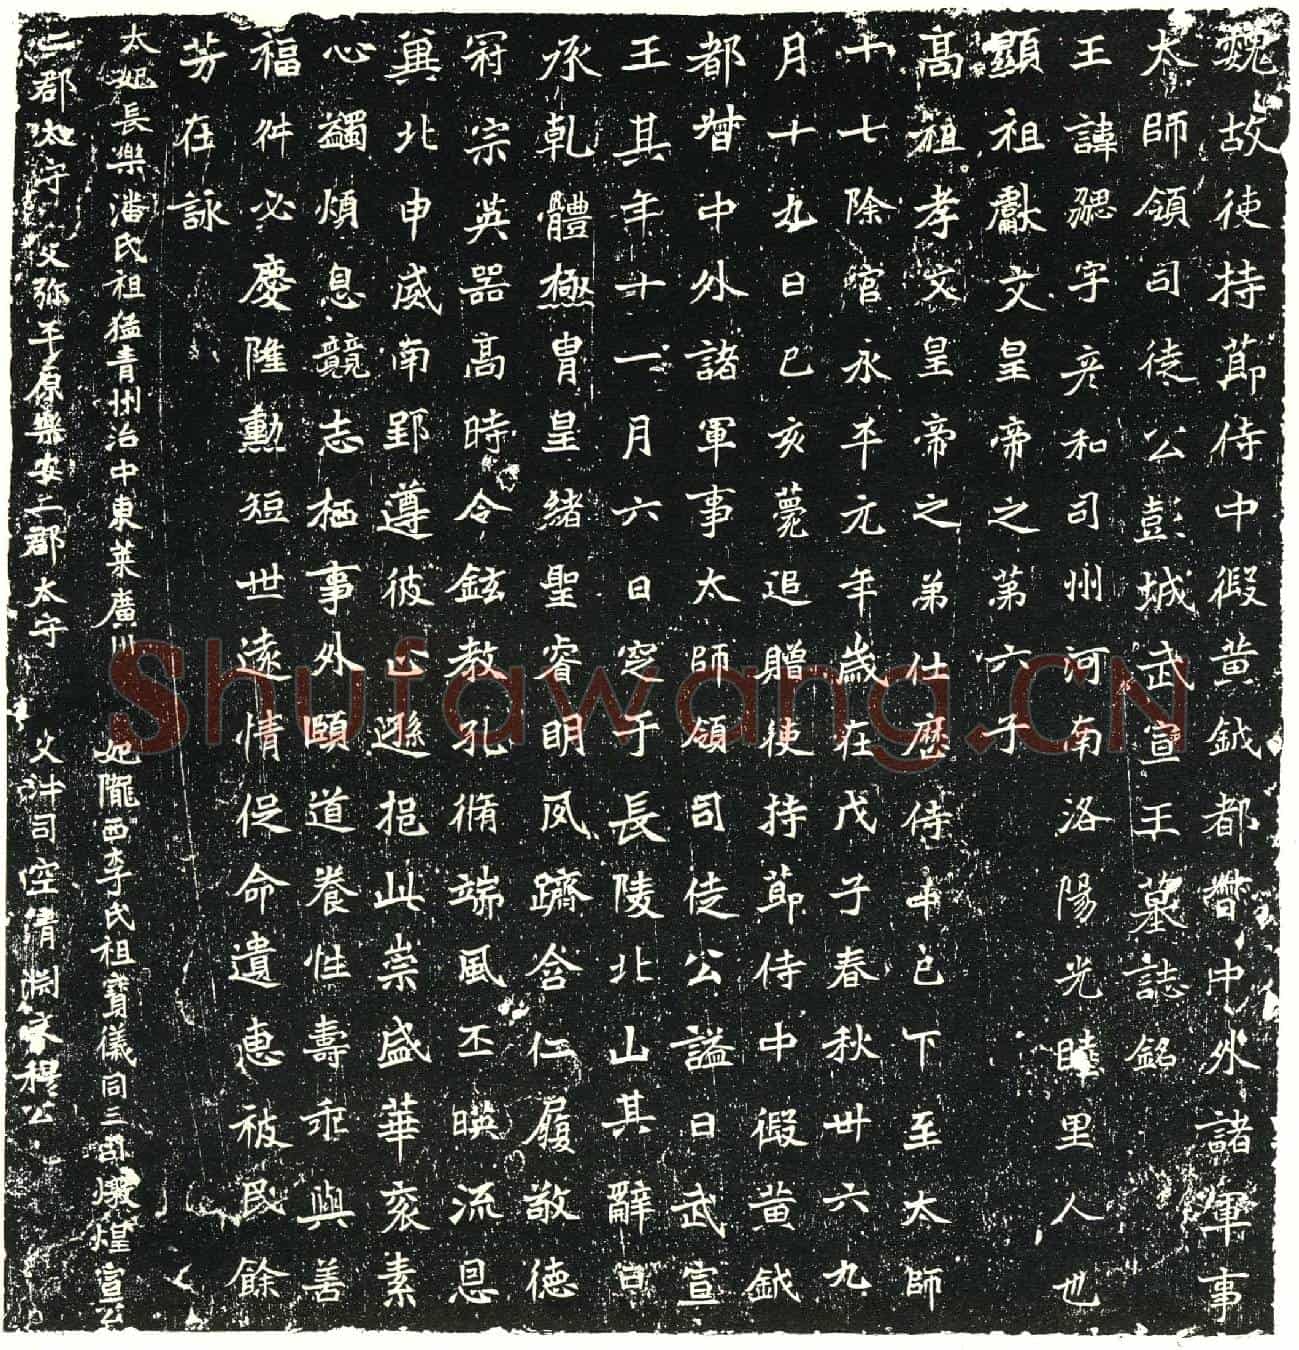 魏故使持節侍中假黃鉞都督中外諸軍事
太師領司徒公彭城武宣王墓誌銘
王諱勰字彥和司州河南洛陽光睦里人也
顯祖獻文皇帝之第六子
高祖孝文皇帝之弟仕歷侍中已下至太師
十七除官永平元年歲在戊子春秋卅六九
月十九日己亥薨追贈使持節侍中假黃鉞
都督中外諸軍事太師領司徒公謚曰武宣
王其年十一月六日窆于長陵北山其辭曰
承乾體極胄皇緒聖睿明夙躋含仁履敬德
冠宗英器高時令鉉教孔脩端風丕暎流恩
冀北申威南郢遵彼止遜挹此崇盛華袞素
心蠲煩息競志栖事外頤道養性壽乖與善
福舛必慶隆勳短世遠情促命遺惠被民餘
芳在詠
太妃長樂潘氏祖猛青州治中東萊廣川
二郡太守 父弥平原樂安二郡太守
妃隴西李氏祖寶儀同三司燉煌宣公
父沖司空清淵文穆公
Shufawang.CN